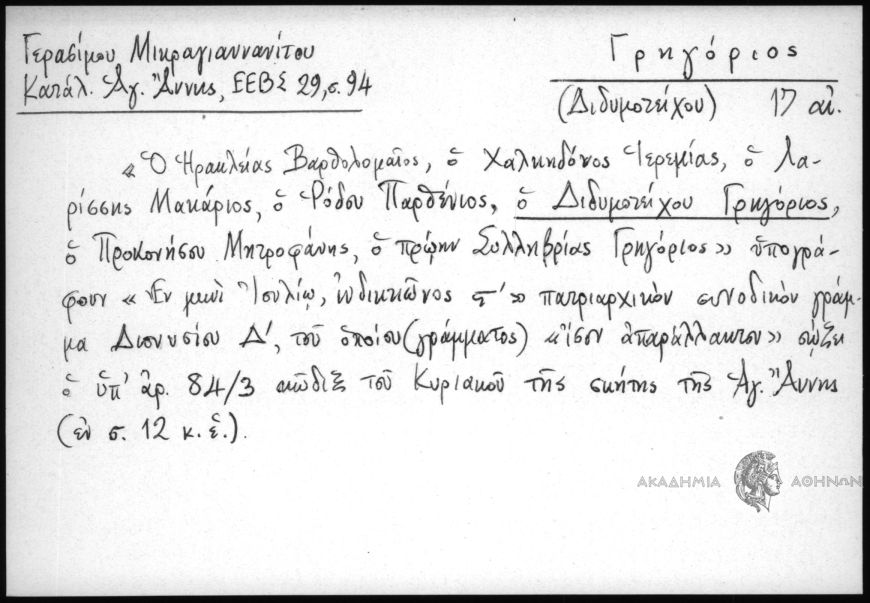 Γερασίμου Μικραγιαννανίτου
Κατάλ. Ἁγ. Ἄννης, ΕΕΒΣ 29, σ. 94
Γρηγόριος
(Διδυμοτείχου) 17 αἰ.
«Ὁ Ἡρακλείας Βαρθολομαῖος, ὁ Χαλκηδόνος Ἱερεμίας, ὁ Λα-
ρίσσης Μακάριος, ὁ Ῥόδου Παρθένιος, ὁ Διδυμοτείχου Γρηγόριος,
ὁ Προκονήσου Μητροφάνης, ὁ πρῴην Συλληβρίας Γρηγόριος» ὑπογρά-
φουν «Ἐν μηνὶ Ἰουλίῳ, ἰνδικτιῶνος ς΄» πατριαρχικὸν συνοδικὸν γράμ-
μα Διονυσίου Δ΄, τοῦ ὁποίου (γράμματος) «ἴσον ἀπαράλλακτον» σῴζει
ὁ ὑπ' ἀρ. 84/3 κῶδιξ τοῦ Κυριακοῦ τῆς σκήτης τῆς Ἁγ. Ἄννης
(ἐν σ. 12 κ. ἑ.).
ΑΚΑΔΗΜΙΑ ΑΘΗΝΩΝ